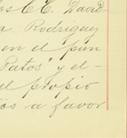 os C.C. David
Rodriguez
en el pun
Patos" y el-
el propio
os a favor